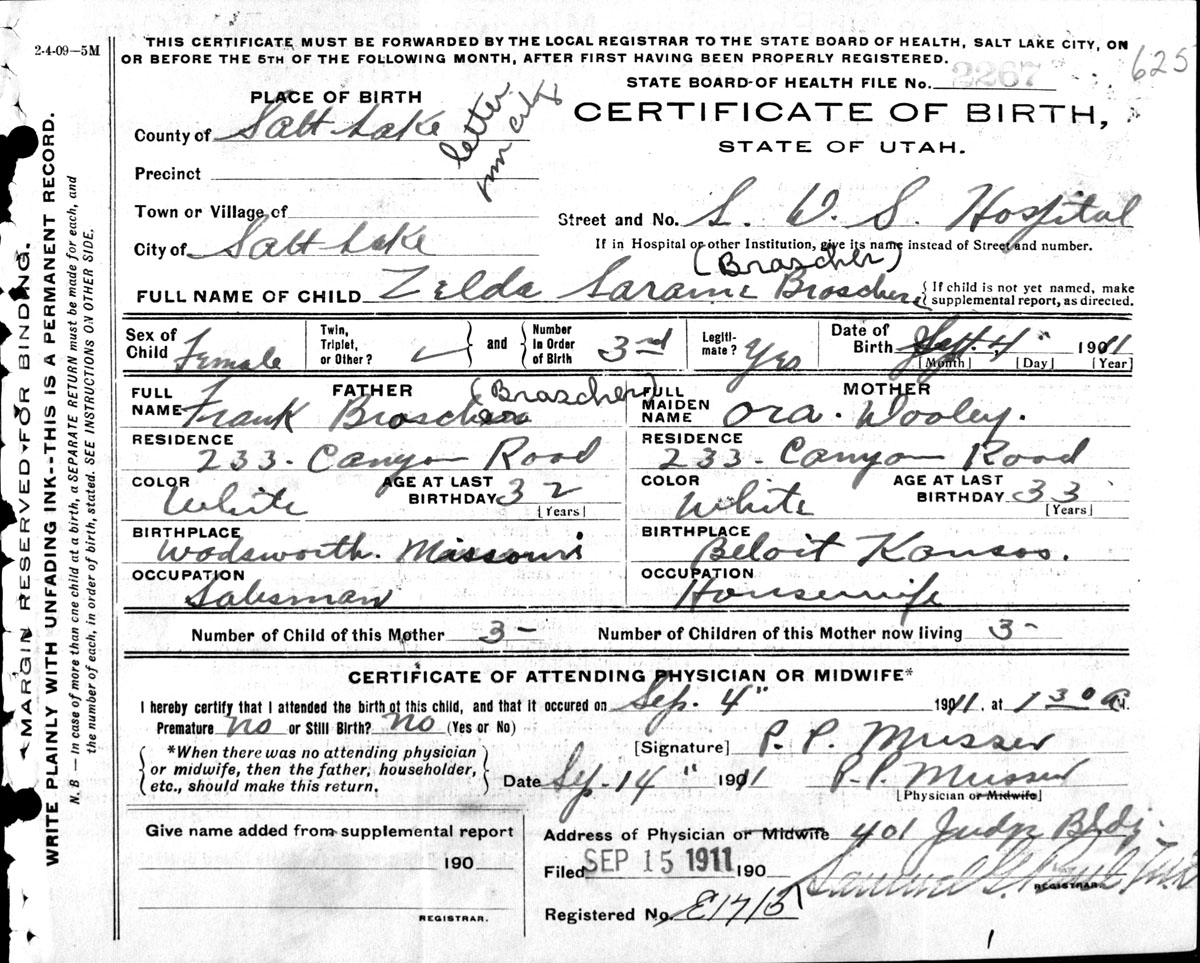 2-4-09—5M
THIS CERTIFICATE MUST BE FORWARDED BY THE LOCAL REGISTRAR TO THE STATE BOARD OF HEALTH, SALT LAKE CITY, ON
OR BEFORE THE 5TH OF THE FOLLOWING MONTH, AFTER FIRST HAVING BEEN PROPERLY REGISTERED.
625
STATE BOARD OF HEALTH FILE No. 2267
PLACE OF BIRTH
letter
CERTIFICATE OF BIRTH,
STATE OF UTAH.
County of Salt Lake
Precinct
Town or Village of
Street and No. L. D. S. Hospital
City of Salt Lake
If in Hospital or other Institution, give its name instead of Street and number.
(Brascher)
FULL NAME OF CHILD Zelda Saramе Broschere
{ If child is not yet named, make
supplemental report, as directed.
Sex of Child Female
Twin, Triplet, or Other? ✓ } and { Number in Order of Birth 3rd
Legiti- mate? Yes
Date of Birth Sept. 4 1911
[Month] [Day] [Year]
FATHER
(Brascher)
FULL NAME Frank Broschere
RESIDENCE
233- Canyon Road
COLOR White
AGE AT LAST BIRTHDAY 32
[Years]
BIRTHPLACE
Wadsworth. Missouri
OCCUPATION
Salesman
MOTHER
FULL MAIDEN NAME Ora. Wooley.
RESIDENCE
233- Canyon Road
COLOR White
AGE AT LAST BIRTHDAY 33
[Years]
BIRTHPLACE
Beloit Kansas.
OCCUPATION
Housewife
Number of Child of this Mother 3-
Number of Children of this Mother now living 3-
CERTIFICATE OF ATTENDING PHYSICIAN OR MIDWIFE*
I hereby certify that I attended the birth of this child, and that it occured on Sep. 4" 1911, at 1 30 a M.
Premature no or Still Birth? no (Yes or No)
*When there was no attending physician
or midwife, then the father, householder,
etc., should make this return.
[Signature] P. P. Musser
Date Sep. 14" 1911 P. P. Musser
[Physician or Midwife]
Give name added from supplemental report
190
REGISTRAR.
Address of Physician or Midwife 401 Judge Bldg.
Filed SEP 15 1911 190
Samuel G.
REGISTRAR.
Registered No. E1715
MARGIN RESERVED FOR BINDING.
WRITE PLAINLY WITH UNFADING INK--THIS IS A PERMANENT RECORD.
N. B — In case of more than one child at a birth, a SEPARATE RETURN must be made for each, and
the number of each, in order of birth, stated. SEE INSTRUCTIONS ON OTHER SIDE.